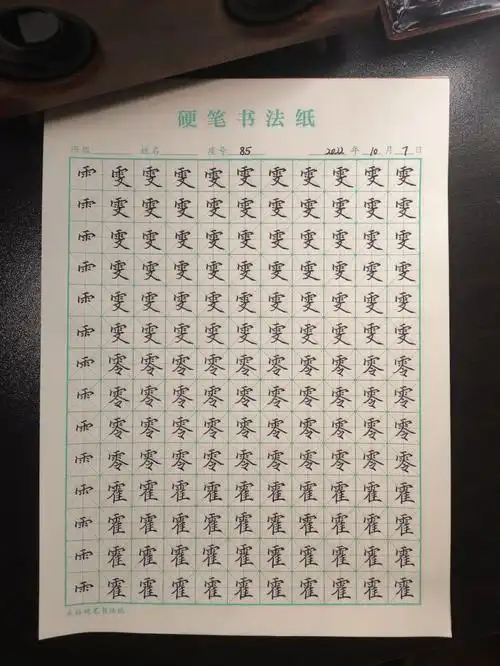 硬笔书法纸
班级 姓名 座号 85 2022 年 10 月 7 日
⻗ 雯 雯 雯 雯 雯 雯 雯 雯 雯 雯
⻗ 雯 雯 雯 雯 雯 雯 雯 雯 雯 雯
⻗ 雯 雯 雯 雯 雯 雯 雯 雯 雯 雯
⻗ 雯 雯 雯 雯 雯 雯 雯 雯 雯 雯
⻗ 雯 雯 雯 雯 雯 雯 雯 雯 雯 雯
⻗ 雯 雯 雯 雯 雯 雯 雯 雯 雯 雯
⻗ 零 零 零 零 零 零 零 零 零 零
⻗ 零 零 零 零 零 零 零 零 零 零
⻗ 零 零 零 零 零 零 零 零 零 零
⻗ 零 零 零 零 零 零 零 零 零 零
⻗ 霍 霍 霍 霍 霍 霍 霍 霍 霍 霍
⻗ 霍 霍 霍 霍 霍 霍 霍 霍 霍 霍
⻗ 霍 霍 霍 霍 霍 霍 霍 霍 霍 霍
⻗ 霍 霍 霍 霍 霍 霍 霍 霍 霍 霍
硬笔书法纸